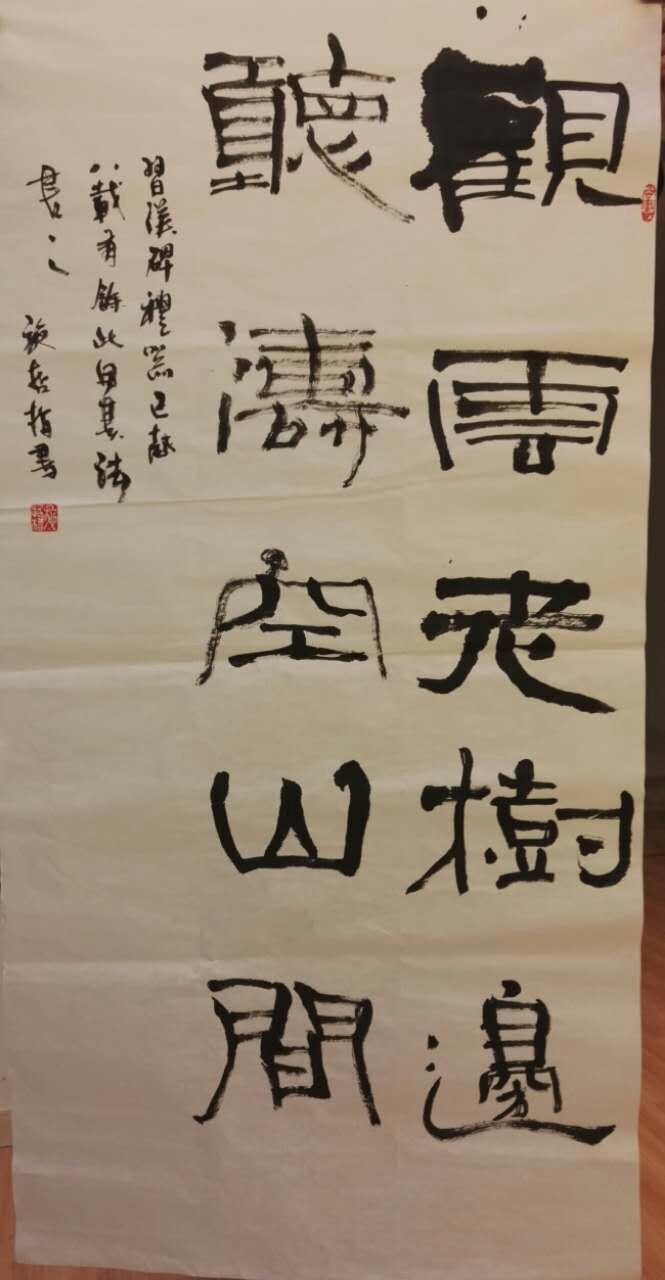 觀雲老樹邊
聽濤空山間
習漢碑禮器已越
八載有餘此自其法
書之